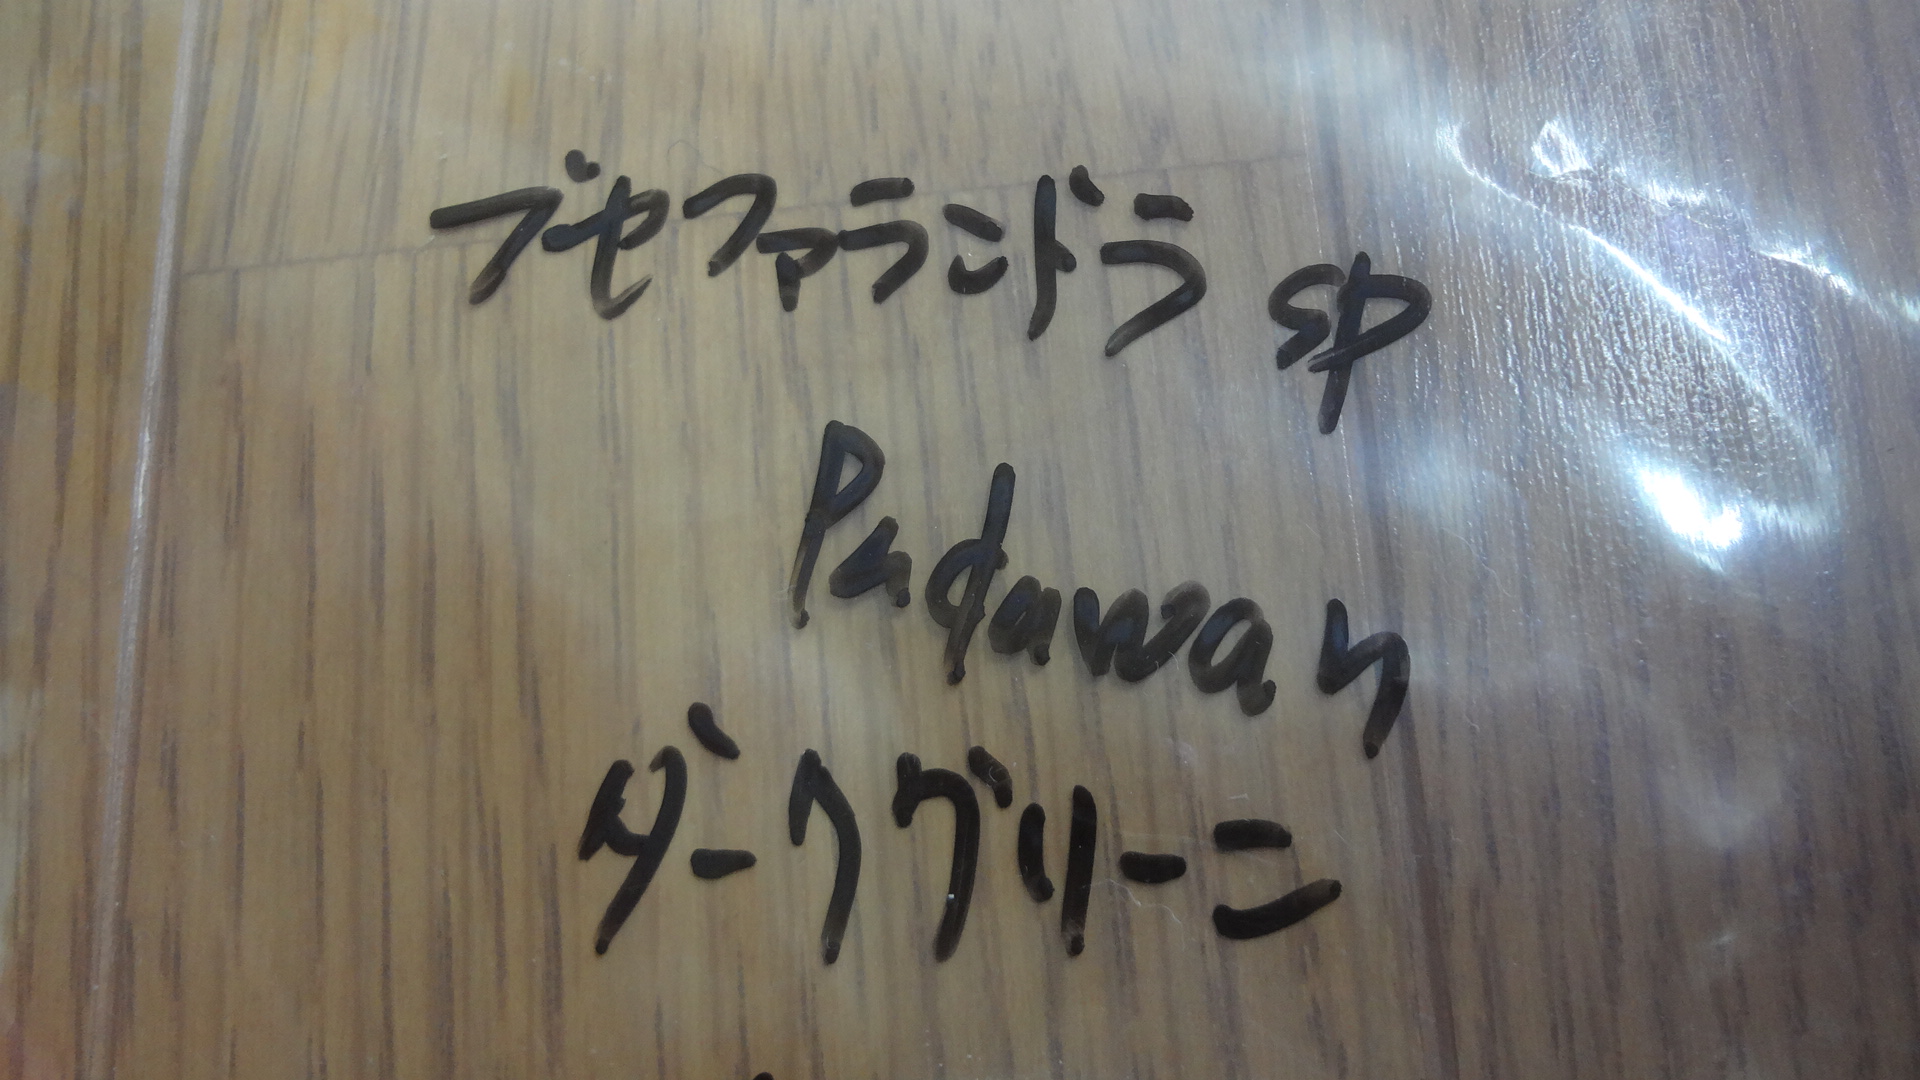 ブセファランドラ sp
Padawan
ダークグリーン